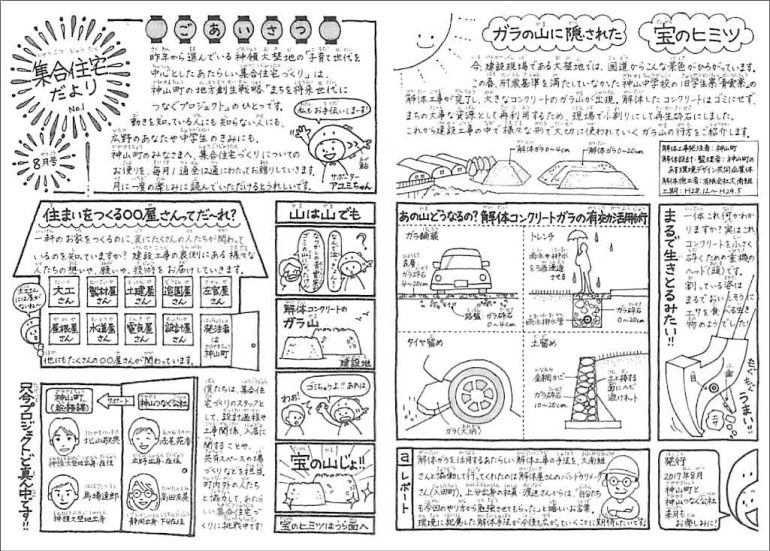 集合住宅
だより
No.1
8月号
ごあいさつ
昨年から進んでいる神領大埜地の「子育て世代を
中心としたあたらしい集合住宅づくり」は、
神山町の地方創生戦略「まちを将来世代に
つなぐプロジェクト」のひとつです。
動きを知っている人にも知らない人にも、
広野のあなたや中学生のきみにも。
神山町のみなさまへ、集合住宅づくりについての
お便りを、毎月1通全12通にわたってお贈りしていきます。
月に一度の楽しみに読んでいただけるとうれしいです。
私もお手伝いします!
サポーター
アユミちゃん
住まいをつくる〇〇屋さんってだ〜れ?
一軒のお家をつくるのに、実にたくさんの人たちが関わって
いるのを知っていますか?建設工事の裏側にある様々な
人たちの想いや、願いや、技術をお届けしていきます。
大工さん
製材屋さん
土建屋さん
造園屋さん
左官屋さん
屋根屋さん
水道屋さん
電気屋さん
設計屋さん
発注者は神山町
他にもたくさんの〇〇屋さんが関わっています。
只今プロジェクトど真ん中です!!
神山町
サポート
神山つなぐ公社
馬場達郎
高田友美
神領大埜地在住
僕たちは、集合住
宅づくりのスタッフと
して、設計画様や
工事関係、入居に
関することや、
共有スペースの場
づくりなどを担当。
町内外の人たち
と協力して、あたら
しい集合住宅づく
りに挑戦中です!
山は山でも
解体コンクリートの
ガラ山
建設地
ゴミちゃうよ!!あれは
わお!
宝の山じょ!!
宝のヒミツはうら面へ
ガラの山に隠された
宝のヒミツ
今、建設現場である大埜地では、国道からこんな景色がひろがっています。
この春、耐震基準を満たしていなかった神山中学校の旧学生寮「青雲寮」の
解体工事が完了し、大きなコンクリートのガラ山が出現。解体したコンクリートはゴミにせず、
まちの大事な資源として再利用するため、現場で小割りにして再生砕石にしました。
これから建設工事の中で様々な形で大切に使われていくガラ山の行方をご紹介します。
解体ガラ0〜4cm
解体ガラ0〜20cm
解体工事発注者:神山町
解体設計・監理者:神山町の
あす環境デザイン共同企業体
解体施工者:有限会社大南組
工期:H28.12〜H29.5
あの山どうなるの?解体コンクリートガラの有効活用術
ガラ舗装
表層
ガラ砕石
4〜20cm
路盤
ガラ砕石
0〜4cm
トレンチ
雨水や排水
を浸透させる
雨水排水管
ガラ砕石
0〜20cm
タイヤ留め
ガラ(大判)
土留め
金網かご
ガラ砕石
10〜20cm
土と接する
面にヘビ
避けネット
まるで生きとるみたい!!
一体これ何かわか
りますか?実はこれ
コンクリートを小さく
砕くための重機
のヘッド(顔)です。
割っている姿は
まるでおいしそうに
エサを食べる生き
物のようでした!
もぐもぐ
うまい!!
aレポート
解体ガラを活用するあたらしい解体工事の手法を、大南組
さんと協働して行ってくれたのは解体屋さんのバントウクリーン
さん(入田町)。上分出身の社員・渡辺さんからは、「自分たち
も今回のやり方から勉強させてもらった。」と嬉しいお言葉。
環境に配慮した解体手法が今後も広がっていくことに期待したいです。
発行
2017年8月
神山町と
神山つなぐ公社
来月も
お楽しみに!